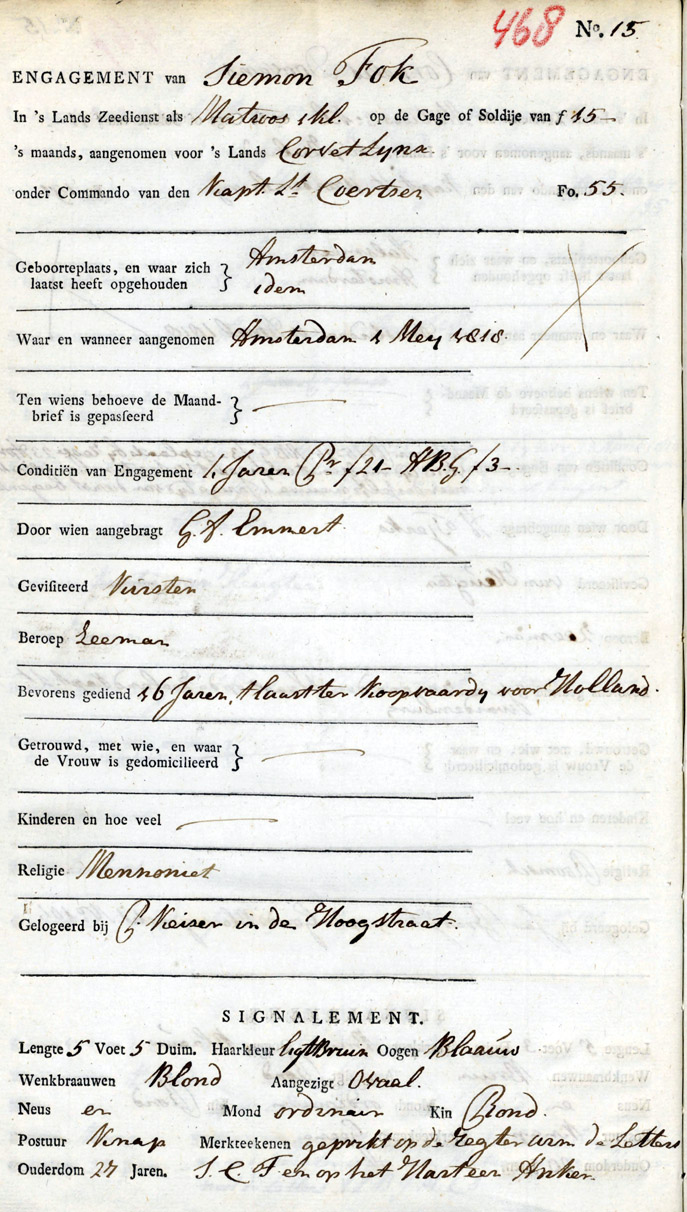 468 No. 15
ENGAGEMENT van Siemon Fok
In 's Lands Zeedienst als Matroos 1 kl. op de Gage of Soldije van ƒ 15 –
's maands, aangenomen voor 's Lands Corvet Lynx
onder Commando van den Kapt. Lt Coertsen Fo. 55.
Geboorteplaats, en waar zich } Amsterdam
laatst heeft opgehouden idem
Waar en wanneer aangenomen Amsterdam 1 Mey 1818.
Ten wiens behoeve de Maand- } —
brief is gepasseerd
Conditiën van Engagement Jaren Pr ƒ 21 – HB.G. ƒ 3 –
Door wien aangebragt Emmert.
Gevisiteerd
Beroep Zeeman
Bevorens gediend 16 Jaren, t laatst ter koopvaardy voor Holland.
Getrouwd, met wie, en waar } —
de Vrouw is gedomicilieerd
Kinderen en hoe veel —
Religie Mennoniet
Gelogeerd bij P. Keiser in de Hoogstraat.
SIGNALEMENT.
Lengte 5 Voet 5 Duim. Haarkleur ligt Bruin Oogen Blaauw
Wenkbraauwen Blond Aangezigt Ovaal.
Neus en Mond ordinair Kin Rond.
Postuur Knap Merkteekenen geprikt op de regter arm de Letters
Ouderdom 27 Jaren. S. C F en op het Hart een Anker.